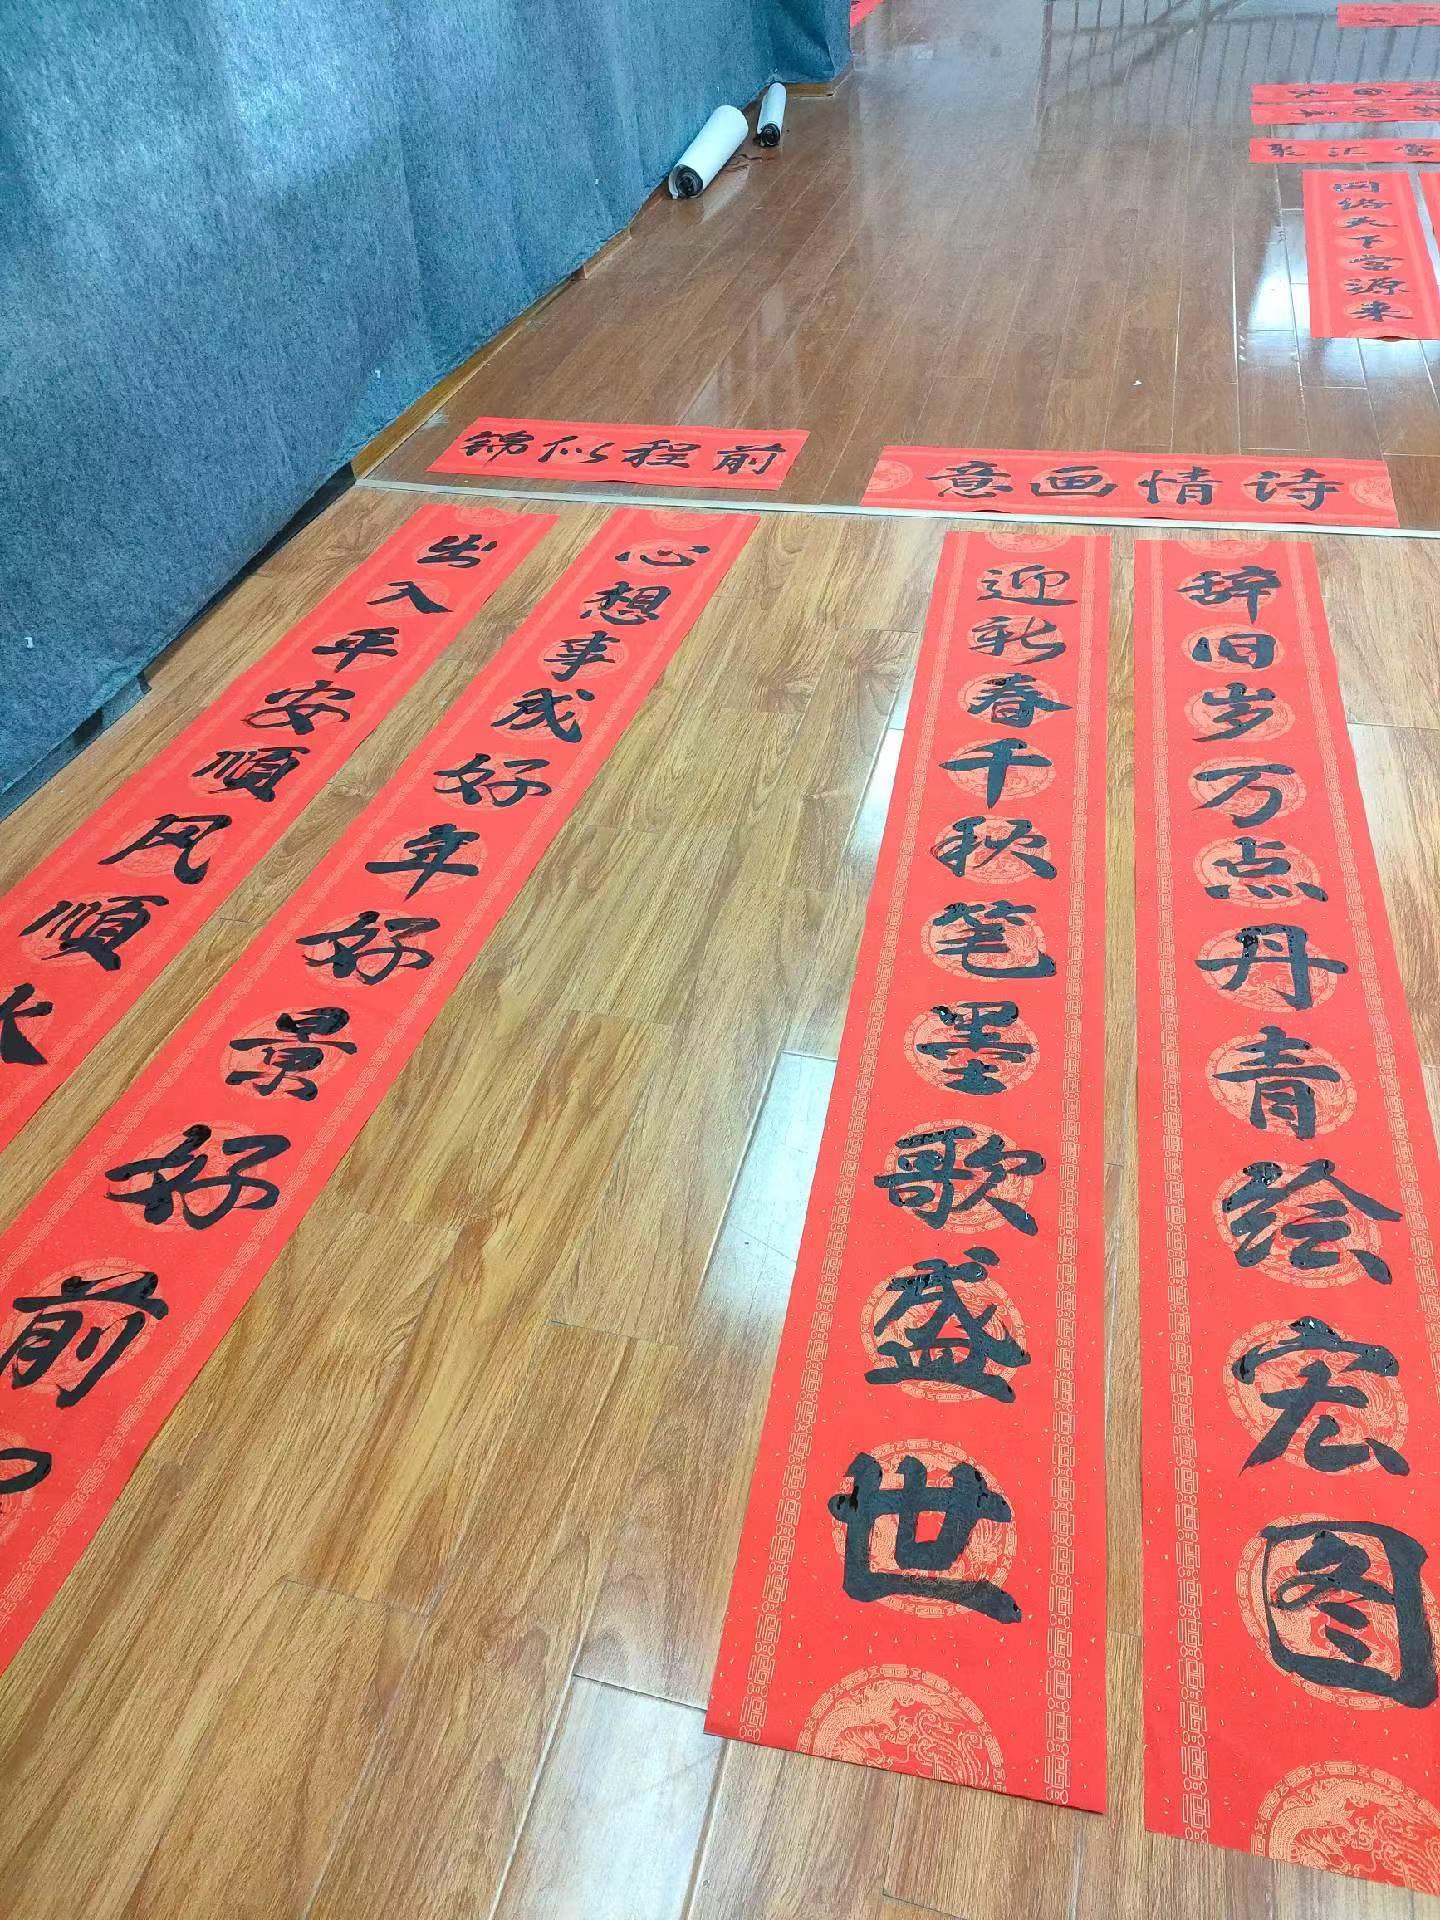 锦似程前
意画情诗
辞旧岁万点丹青绘宏图
迎新春千秋笔墨歌盛世
心想事成好年好景好前
出入平安顺风顺水
网络天下富源来
聚汇富